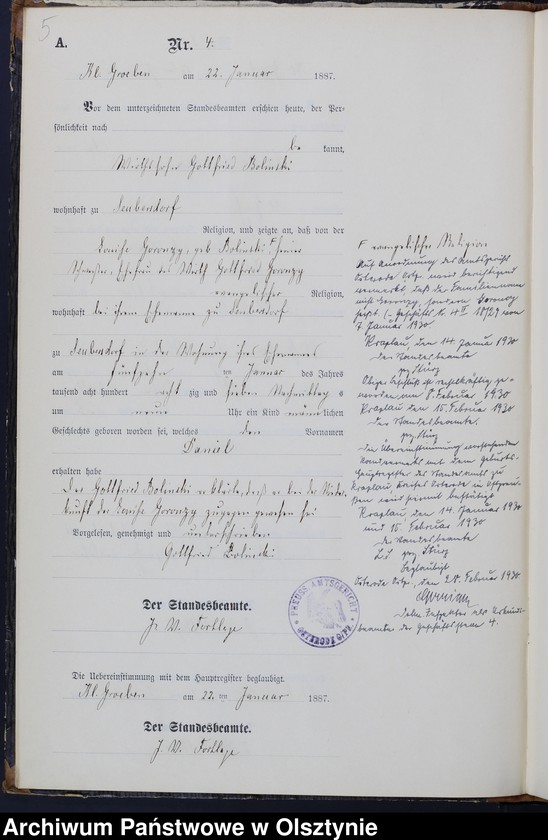 5
A.
Nr. 4.
Kl. Groeben am 22. Januar 1887.
Vor dem unterzeichneten Standesbeamten erschien heute, der Per-
sönlichkeit nach
be kannt,
Gottfried Bolinski
wohnhaft zu Seubersdorf
Religion, und zeigte an, daß von der
Louise Goronzy, geb Bolinski seiner
Schwester, Ehefrau des Wirth Gottfried Goronzy
evangelischer Religion,
wohnhaft bei ihrem Ehemanne zu Seubersdorf
zu Seubersdorf in der Wohnung ihres Ehemannes
am fünfzehn ten Januar des Jahres
tausend acht hundert acht zig und sieben Nachmittags
um neun Uhr ein Kind männlichen
Geschlechts geboren worden sei, welches den Vornamen
Daniel
erhalten habe
Der Gottfried Bolinski erklärte, daß er bei der Nieder-
kunft der Louise Goronzy zugegen gewesen sei
Vorgelesen, genehmigt und unterschrieben
Gottfried Bolinski
Der Standesbeamte.
J. V.
Die Uebereinstimmung mit dem Hauptregister beglaubigt.
Kl. Groeben am 22. ten Januar 1887.
Der Standesbeamte.
J. V.
evangelischer Religion
Auf Anordnung des Amtsgerichts
Osterode Ostpr. wird berichtigend
vermerkt, daß der Familienname
nicht Goronzy, sondern
7. Januar 1930
Kraplau, den 14. Januar 1930
Der Standesbeamte
gez.
Obiger Beschluß ist rechtskräftig ge-
worden am 8. Februar 1930
Kraplau den 15. Februar 1930
Der Standesbeamte.
gez.
Die Übereinstimmung vorstehenden
Randvermerks mit dem Geburts-
Hauptregister des Standesamts zu
Kraplau Kreises Osterode in Ostpreu-
ßen wird hiermit bestätigt
Kraplau, den 14. Januar 1930
und 15. Februar 1930
Der Standesbeamte
gez.
Beglaubigt
Osterode Ostpr., den 28. Februar 1930.
als Urkunds-
beamter der Geschäftsstelle 4.
PREUSS. AMTSGERICHT
OSTERODE OSTPR.
Archiwum Państwowe w Olsztynie